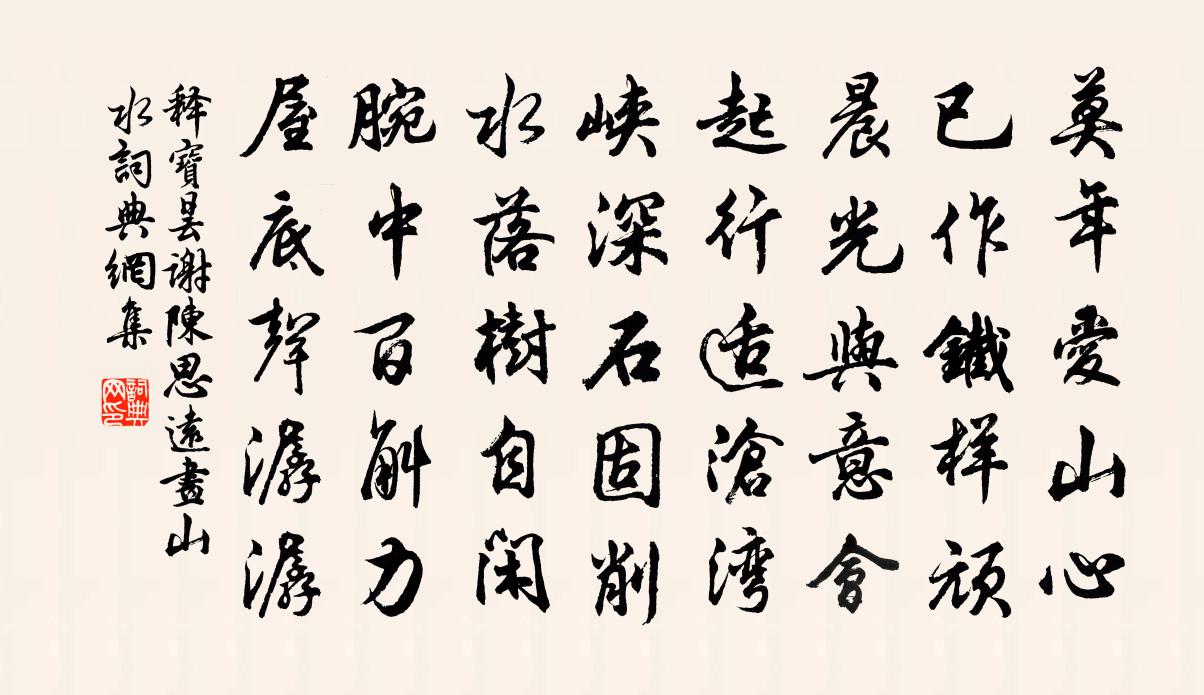 莫年愛山心
已作鐵样頑
晨光與意會
起行适滄湾
峽深石固削
水落樹自閑
腕中百斛力
屋底聲潺潺
释寶曇謝陳思遠畫山
水詞典網集
詞典网印